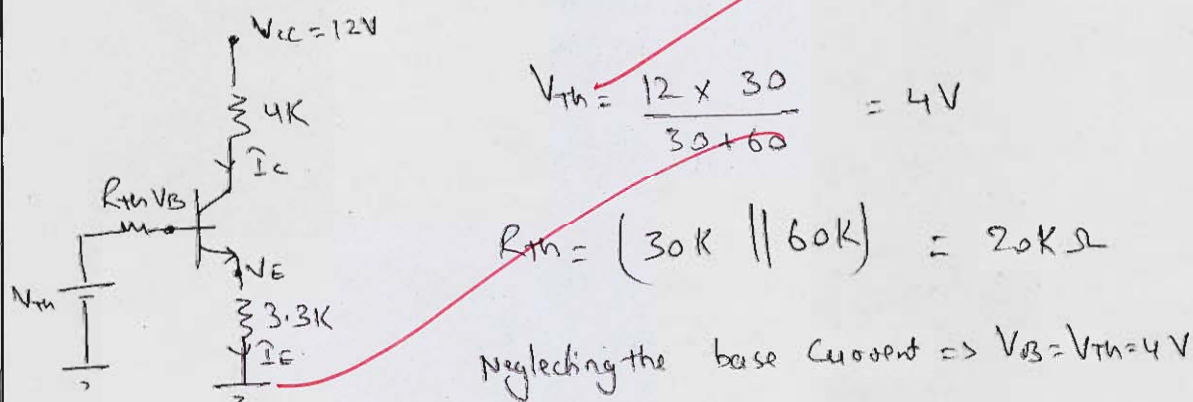 Vcc = 12V
4K
Ic
Rth VB
VE
VTh
3.3K
IE
VTh = 12 x 30 / 30+60 = 4V
Rth = (30K || 60K) = 20K Ω
Neglecting the base Current => VB = VTh = 4V